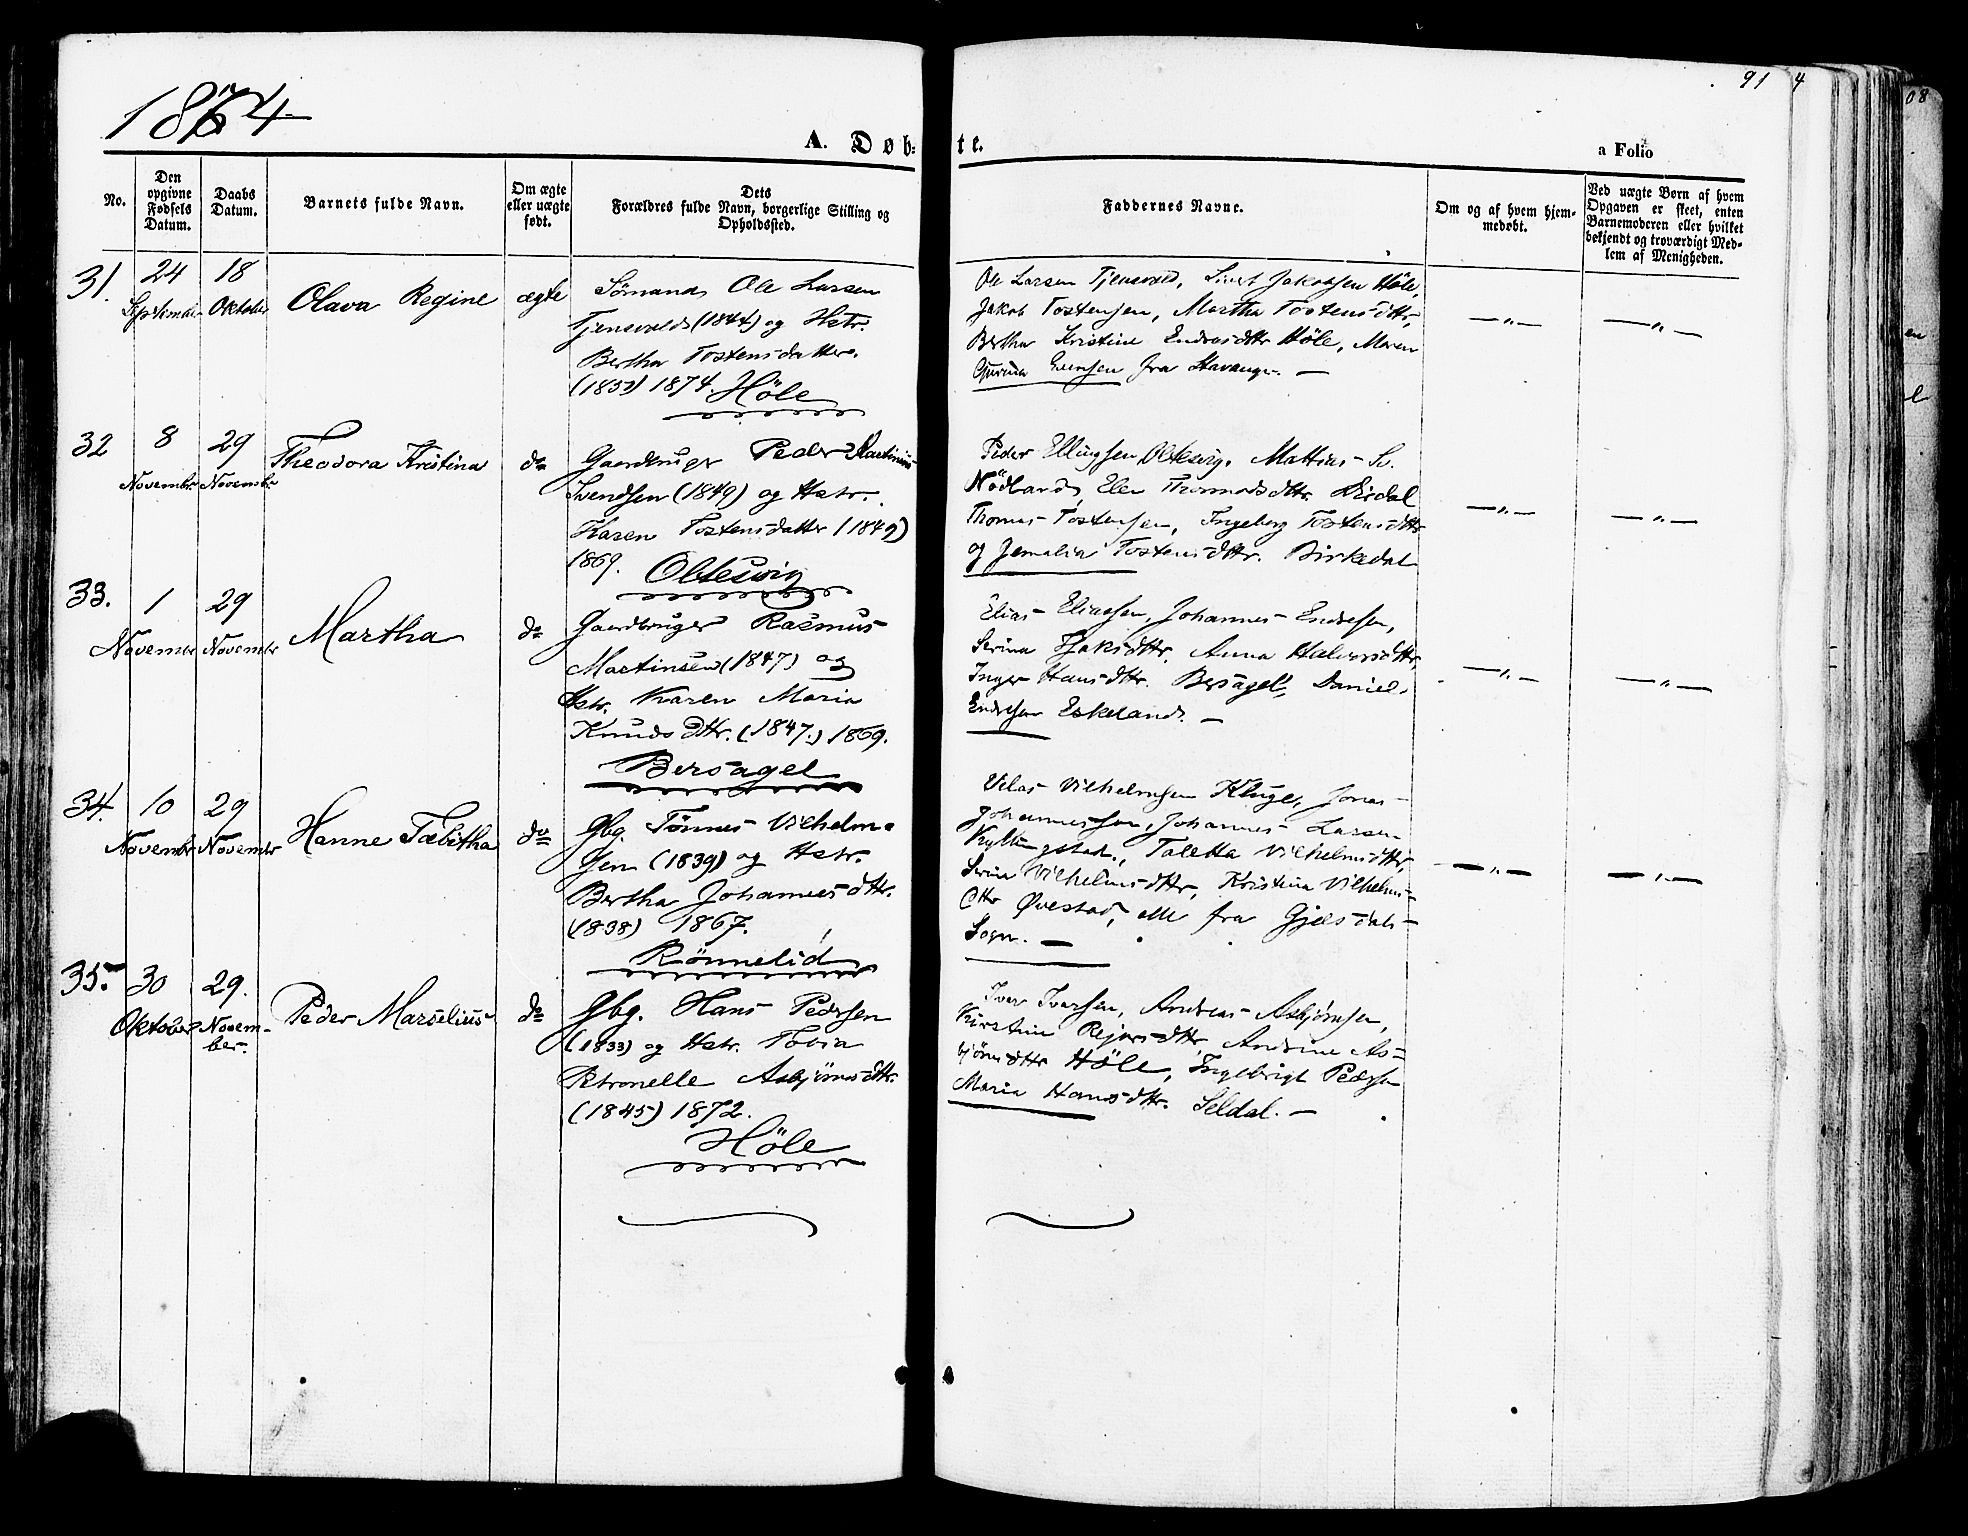 1874
91
4
08
A. Døb-
te.
a Folio
No.
Den
opgivne
Fødsels
Datum.
Daabs
Datum.
Barnets fulde Navn.
Om ægte
eller uægte
født.
Dets
Forældres fulde Navn, borgerlige Stilling og
Opholdssted.
Faddernes Navne.
Om og af hvem hjem-
medøbt.
Ved uægte Børn af hvem
Opgaven er skeet, enten
Barnemoderen eller hvilket
bekjendt og troværdigt Med-
lem af Menigheden.
31.
24
September
18
Oktober
Olava Regine
ægte
Sömand Ole Larsen
Tjensvold (1844) og Hstr.
Bertha Tostensdatter.
(1852) 1874. Höle
Ole Larsen Tjensvold, Sivert Jakobsen Höle,
Jakob Tostensen, Martha Tostensdttr,
Bertha Kristine Endresdttr Höle, Maren
Gurina Evensen fra Stavanger. —
— " —
— " —
32
8
Novembr
29
Novembr
Theodora Kristina
do
Gaardbruger Peder Martinius
Svendsen (1849) og Hstr.
Karen Tostensdatter (1849)
1869. Oltesvig
Peder Ellingsen Oltesvig, Mattias Sv.
Nödland, Elen Thomasdttr. Dirdal
Thomas Tostensen, Ingeborg Tostensdttr
og Jemalia Tostensdttr. Birkedal
— " —
— " —
33.
1
Novembr
29
Novembr
Martha
do
Gaardbruger Rasmus
Martinsen (1847) og
Hstr. Karen Maria
Knudsdttr. (1847.) 1869.
Bersagel
Elias Eliassen, Johannes Endresen,
Serina Isaksdttr. Anna Halvorsdttr,
Inger Hansdttr. Bersagel, Daniel
Endresen Eskeland. —
— " —
— " —
34.
10
Novembr
29
Novembr
Hanne Tabitha
do
Gbg. Tönnes Vilhelm-
sen (1839) og Hstr.
Bertha Johannesdttr.
(1838) 1867.
Rönnelid
Vilhelmsen Kluge, Jonas
Johannessen, Johannes Larsen
Kyllingstad, Taletta Vilhelmsdttr,
Serina Vilhelmsdttr, Kristina Vilhelms-
dttr Øvestad, alle fra Gjesdals-
Sogn. —
— " —
— " —
35.
30
Oktober
29.
Novem-
ber.
Peder Marselius
do
Gbg. Hans Pedersen
(1833) og Hstr. Tobia
Petronelle Asbjörnsdttr.
(1845) 1872.
Höle
Iver Iversen, Andreas Asbjörnsen,
Kirstine Rejersdttr Andrine As-
björnsdttr Höle, Ingebrigt Pedersen
Maria Hansdttr. Seldal. —